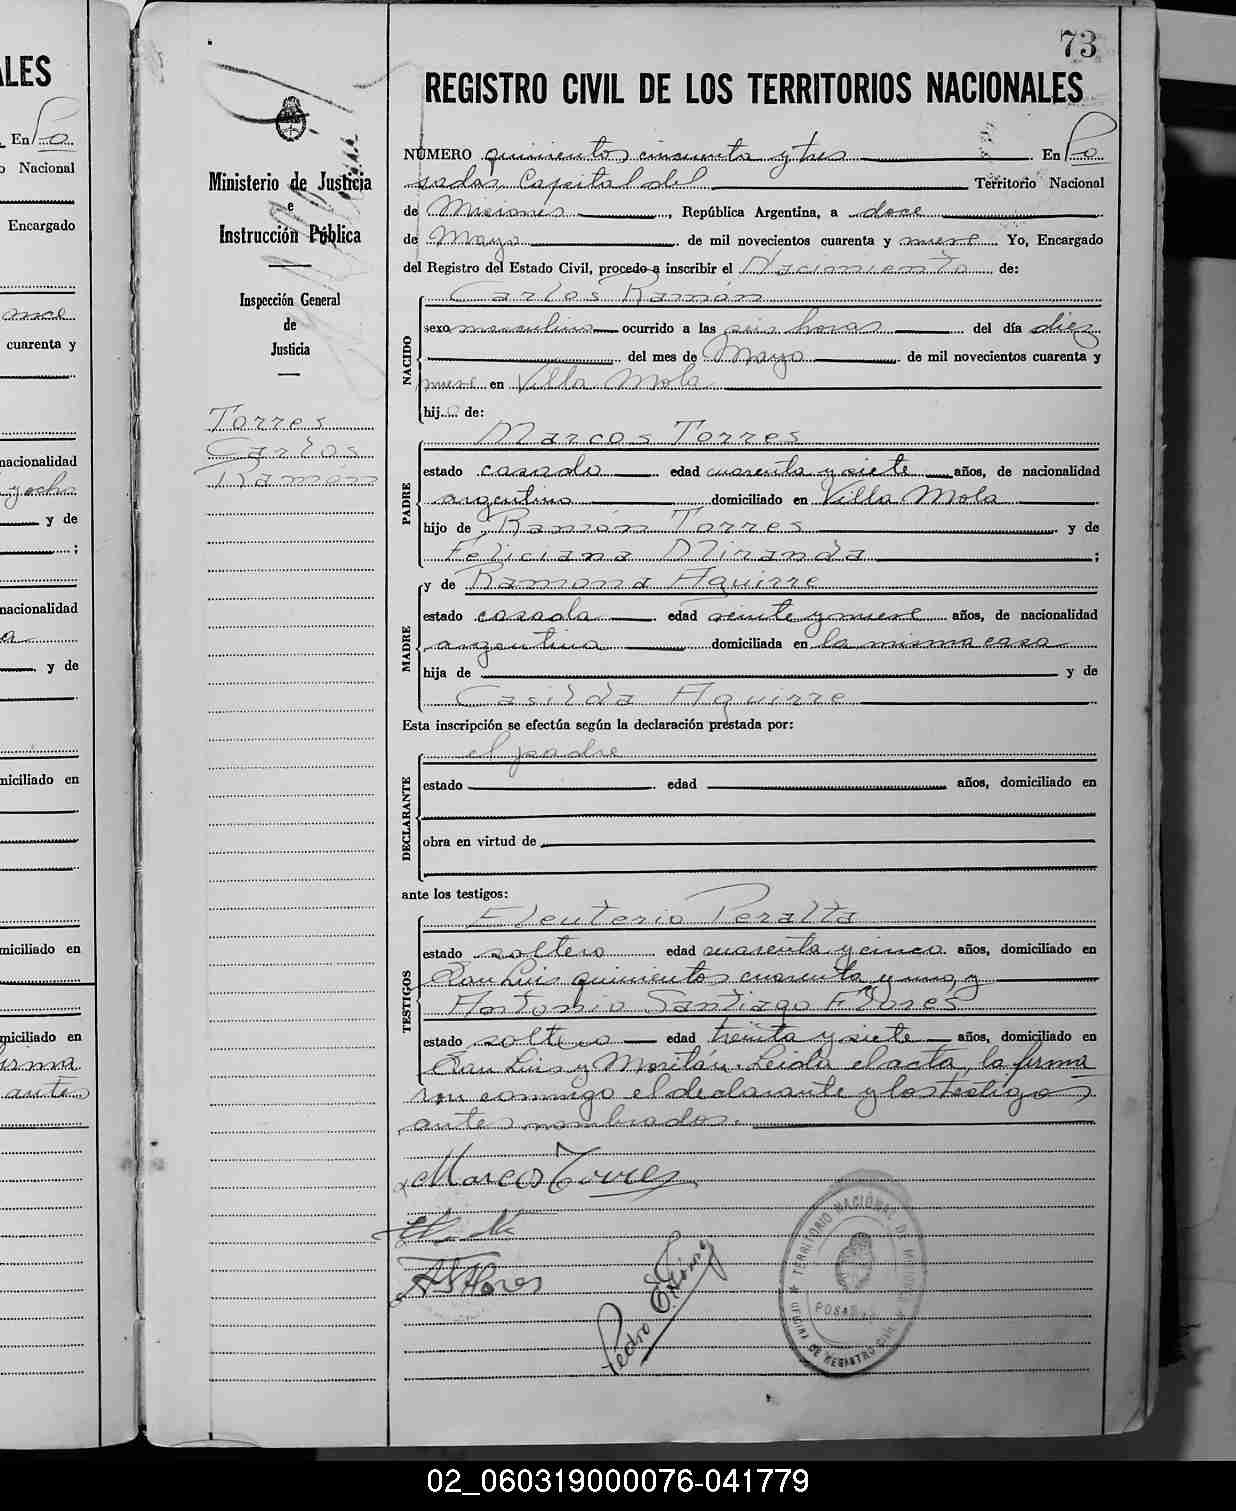 ALES
En Po
o Nacional
Encargado
once
cuarenta y
nacionalidad
y ocho
y de
;
nacionalidad
a
y de
niciliado en
miciliado en
miciliado en
firma
ante
73
REGISTRO CIVIL DE LOS TERRITORIOS NACIONALES
Ministerio de Justicia
e
Instrucción Pública
Inspección General
de
Justicia
Torres
Carlos
Ramón
NÚMERO quinientos cincuenta y tres . En Po
sadas Capital del Territorio Nacional
de Misiones , República Argentina, a doce
de Mayo de mil novecientos cuarenta y nueve Yo, Encargado
del Registro del Estado Civil, procedo a inscribir el Nacimiento de:
NACIDO
Carlos Ramón
sexo masculino ocurrido a las seis horas del día diez
del mes de Mayo de mil novecientos cuarenta y
nueve en Villa Mola
hijo de:
PADRE
Marcos Torres
estado casado edad cuarenta y siete años, de nacionalidad
argentino domiciliado en Villa Mola
hijo de Ramón Torres y de
Feliciana Miranda ;
MADRE
y de Ramona Aguirre
estado casada edad veinte y nueve años, de nacionalidad
argentina domiciliada en la misma casa
hija de y de
Casilda Aguirre
Esta inscripción se efectúa según la declaración prestada por:
DECLARANTE
el padre
estado . edad años, domiciliado en
obra en virtud de
ante los testigos:
TESTIGOS
Eleuterio Peralta
estado soltero edad cuarenta y cinco años, domiciliado en
San Luis quinientos cuarenta y uno y
Antonio Santiago Flores
estado soltero edad treinta y siete años, domiciliado en
San Luis y Moritán. Leída el acta, la firma
ron conmigo el declarante y los testigos
antes nombrados.
Marcos Torres
ASFlores
Pedro
TERRITORIO NACIONAL DE MISIONES
POSADAS
OFICINA DE REGISTRO CIVIL
02_060319000076-041779